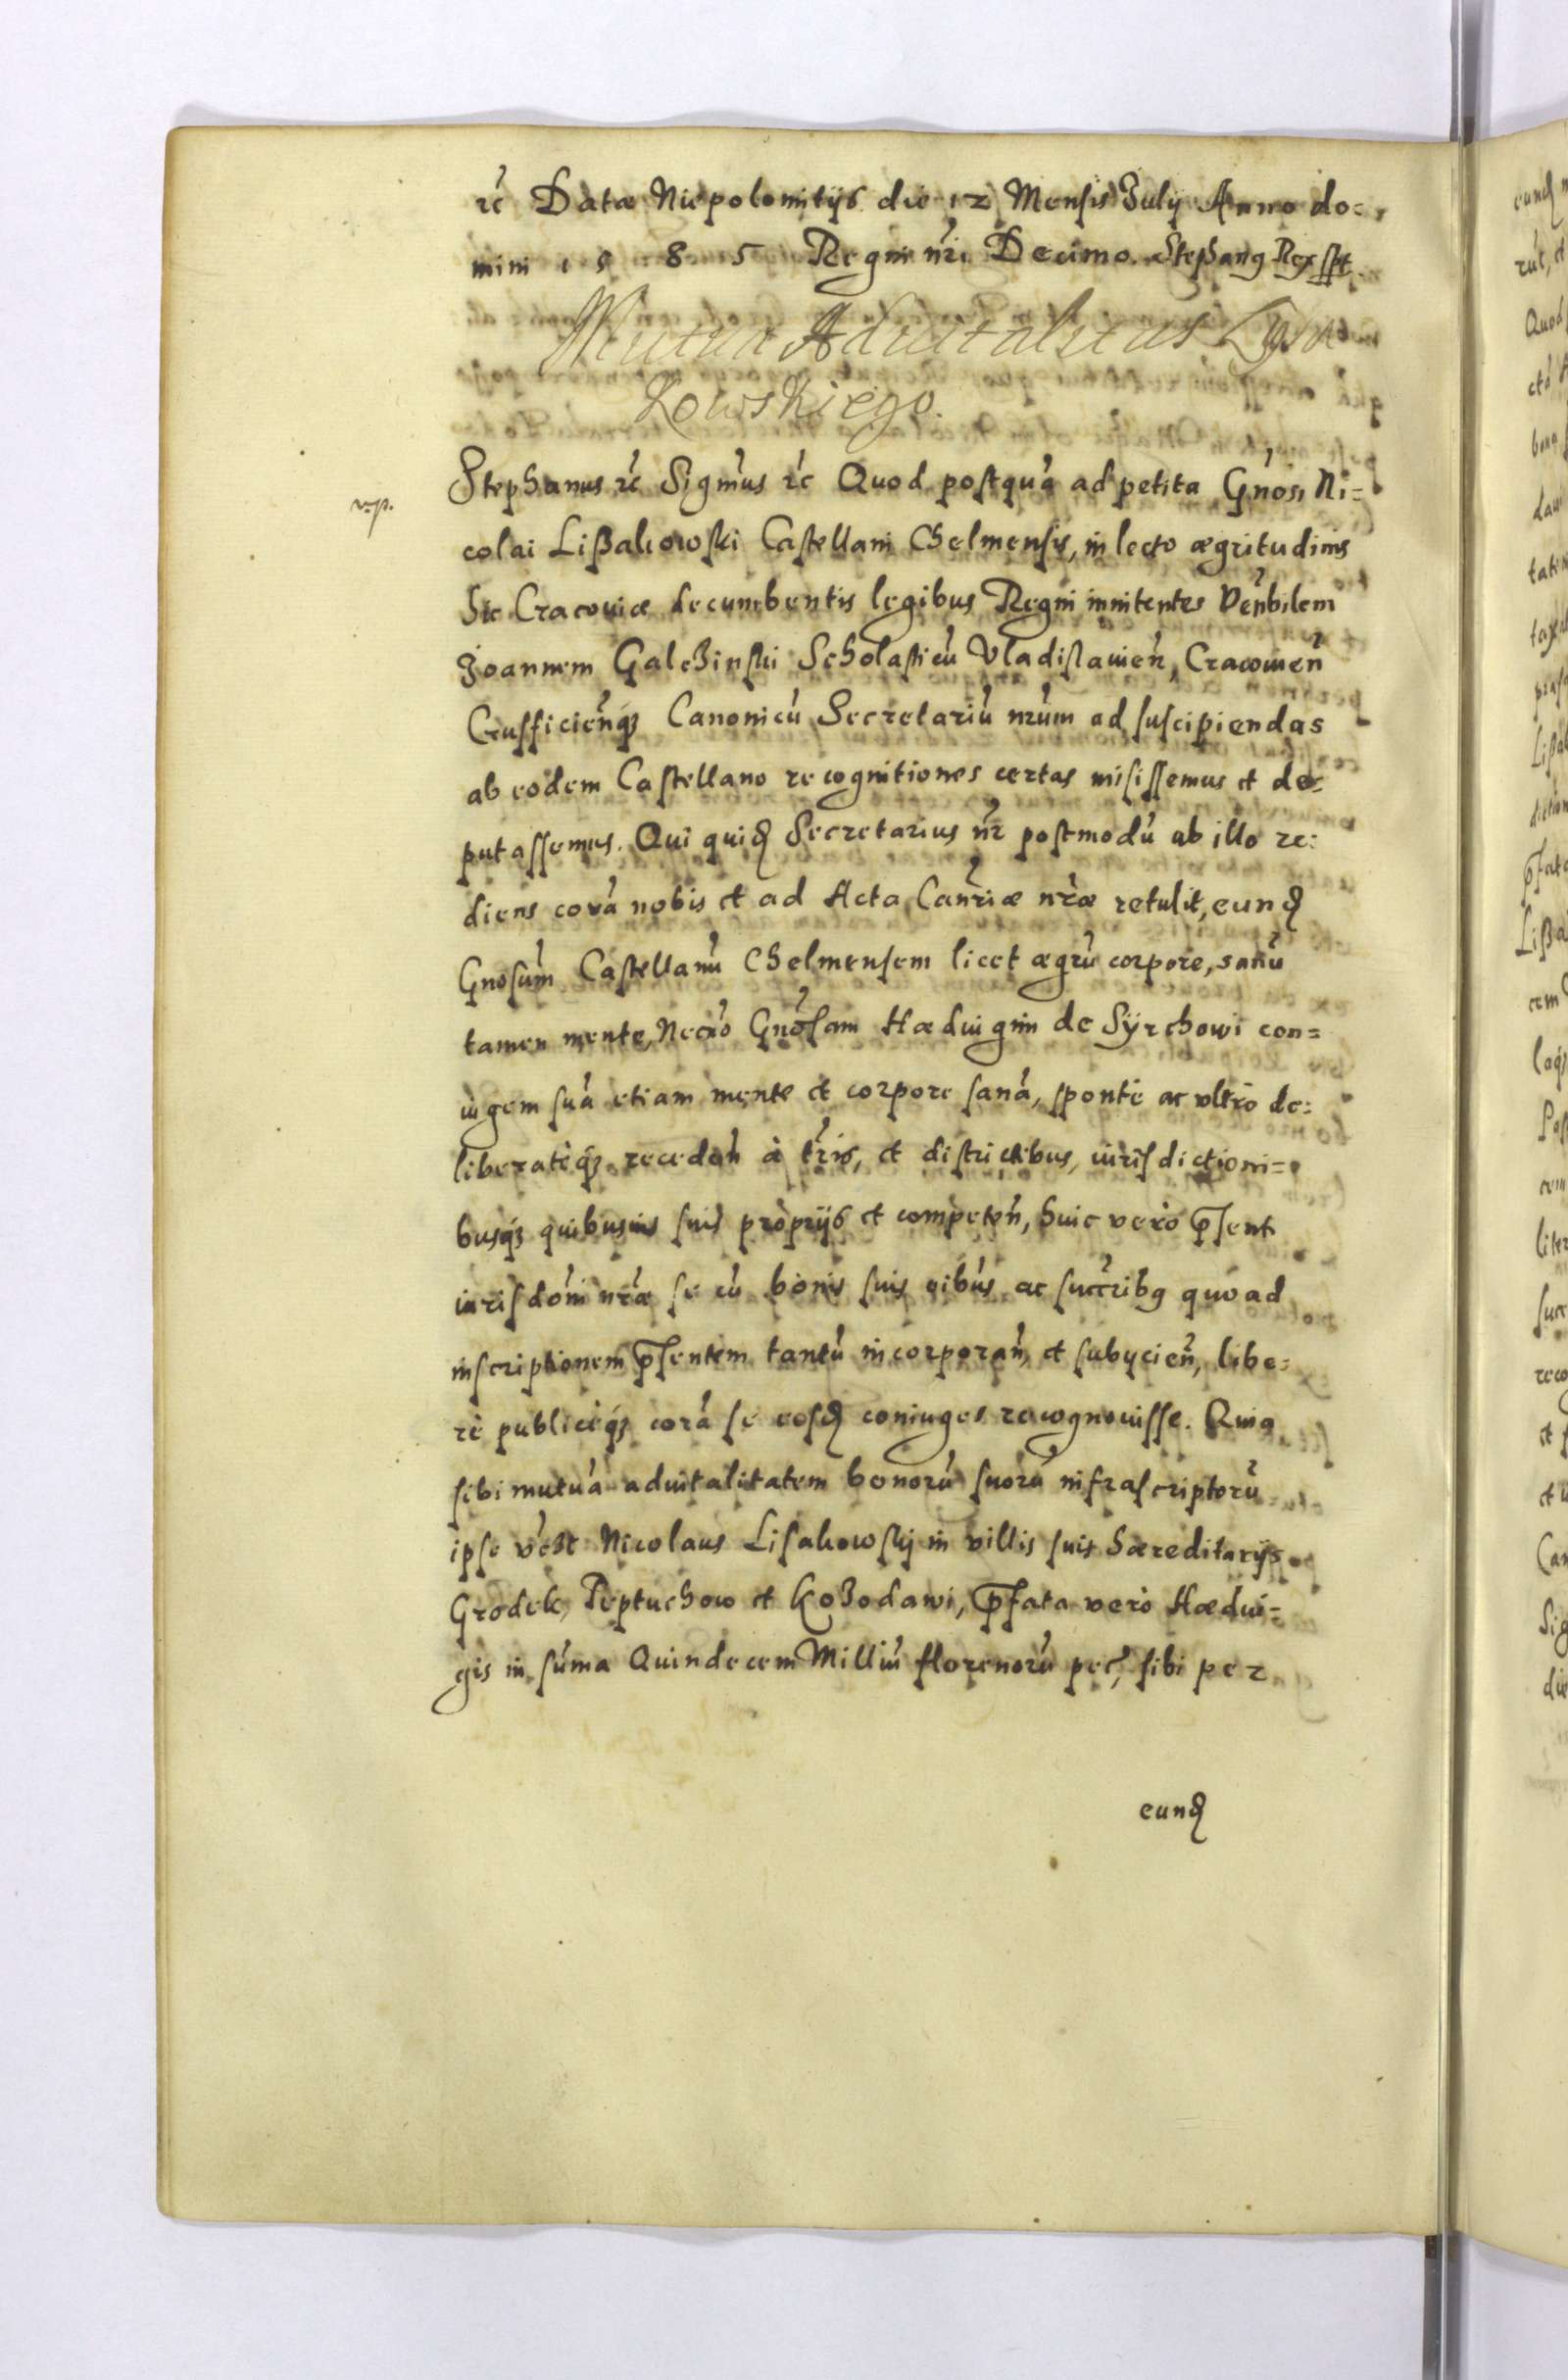 rc̃ Datæ Niepolomitijs die 12 Mensis Julij Anno do=
mini 1585 Regni nr̃i Decimo. Stephanꝰ Rex sst
Mutua Aduitalitas Lysa
kowskiego.
Stephanus rc̃ Signus̃ rc̃ Quod postquã ad petita Gñosi Ni=
v.p.
colai Lißakowski Castellani Chelmensis, in lecto ægritudinis
hic Cracouiæ decumbentis legibus Regni innitentes Veñbilem
Joannem Galczinski Scholasticũ Vladislauieñ, Cracouieñ
Crusficieñqꝫ Canonicũ Secretariũ nr̃um ad suscipiendas
ab eodem Castellano recognitiones certas misissemus et de=
putassemus. Qui quidꝫ Secretarius nr̃ postmodũ ab illo re=
diens corã nobis et ad Acta Cancr̃iæ nr̃æ retulit, eundꝫ
Gnosum̃ Castellanũ Chelmensem licet ægrũ corpore, sanũ
tamen mente, Necño Gnõsam Hæduigim de Syrchowi con=
iugem suã etiam mente et corpore sanã, sponte ac vltro de=
liberateqꝫ recedeñ à tr̃is, et districtibus, iurisdictioni=
busqꝫ quibusuis suis proprijs et competeñ, huic vero p̃sent
iurisdom̃i nr̃æ se cũ bonis suis oibũs ac succr̃ibꝰ quoad
inscriptionem p̃sentem tantũ incorporañ, et subijcieñ, libe=
rè publiceqꝫ corã se eosdꝫ coniuges recognouisse. Quia
sibi mutuã aduitalitatem bonorũ suorũ infrascriptorũ
ipse vc̃zt Nicolaus Lisakowskj in villis suis hæreditarijs
Grodek, Peptuchow et Kozodawi, p̃fata vero Hædui=
gis in sum̃a Quindecem Milliũ florenorũ pec̃, sibi per
eundꝫ